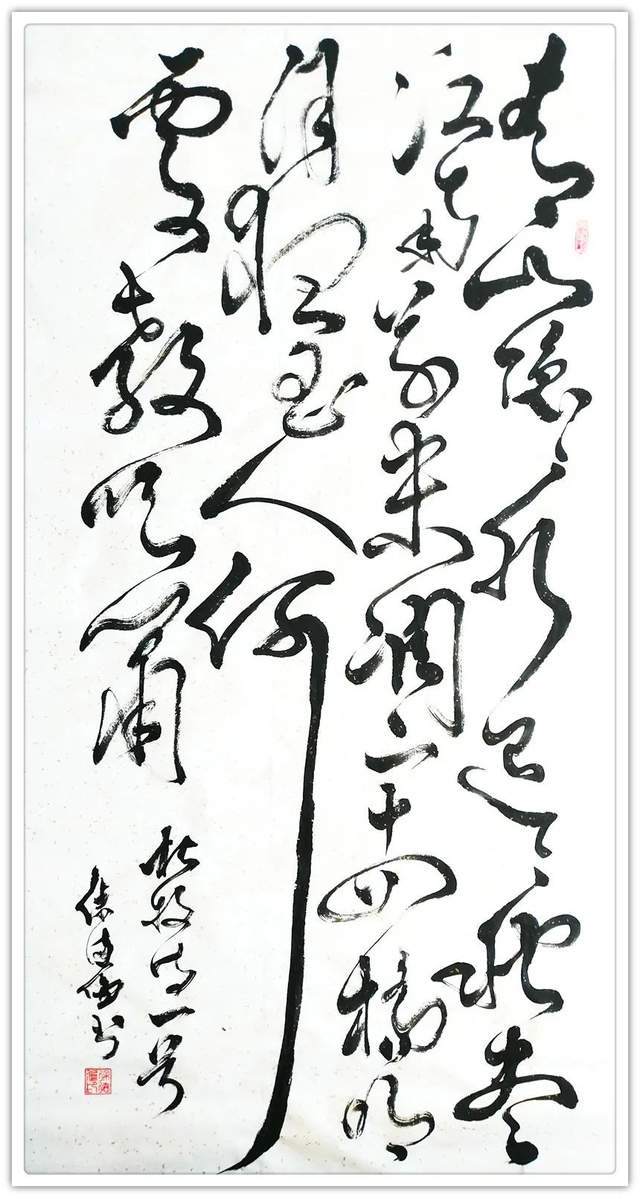 青山隐隐水迢迢秋尽
江南草未凋二十四桥明
月夜玉人何
處教吹箫
杜牧诗一首
书